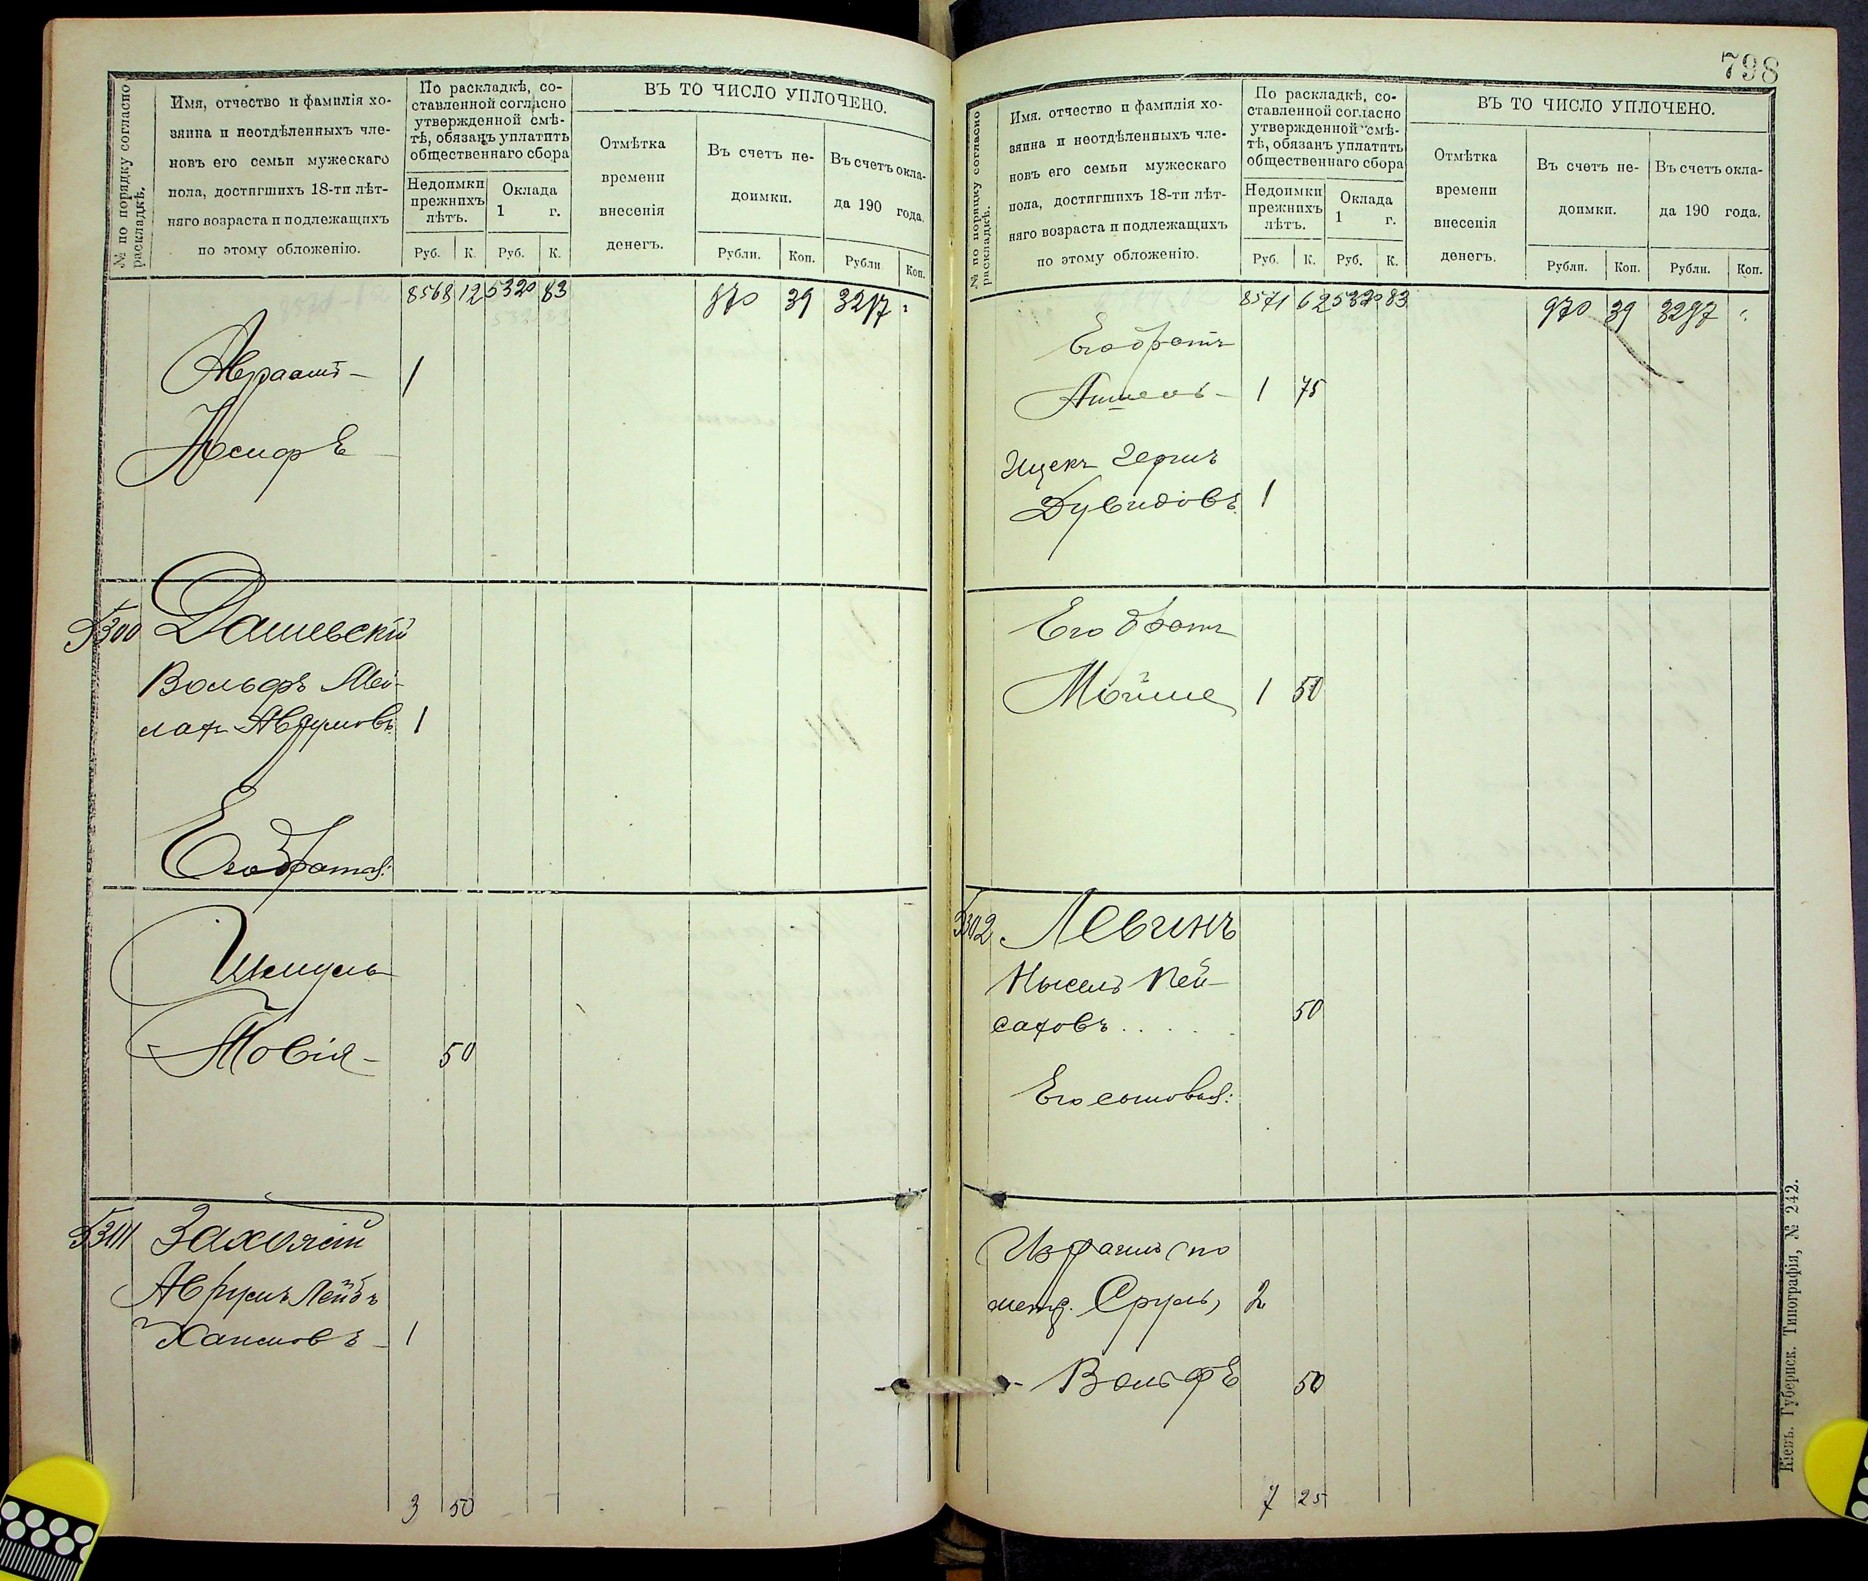 № по порядку согласно раскладкѣ.
Имя, отчество и фамилія хо-
зяина и неотдѣленныхъ чле-
новъ его семьи мужескаго
пола, достигшихъ 18-ти лѣт-
няго возраста и подлежащихъ
по этому обложенію.
По раскладкѣ, со-
ставленной согласно
утвержденной смѣ-
тѣ, обязанъ уплатить
общественнаго сбора
Недоимки
прежнихъ
лѣтъ.
Оклада
1 г.
Руб. К. Руб. К.
ВЪ ТО ЧИСЛО УПЛОЧЕНО.
Отмѣтка
времени
внесенія
денегъ.
Въ счетъ не-
доимки.
Въ счетъ окла-
да 190 года.
Рубли. Коп. Рубли Коп.
8568 12 5320 83 970 39 3297 "
Авраамъ - 1
Іосифъ -
5300 Дашевскій
Вольфъ Мей-
лахъ Аврумовъ 1
Его братья:
Шмуль
Товія - 50
5301
Аврумъ Лейбъ
Хаимовъ - 1
3 50
798
№ по порядку согласно раскладкѣ.
Имя, отчество и фамилія хо-
зяина и неотдѣленныхъ чле-
новъ его семьи мужескаго
пола, достигшихъ 18-ти лѣт-
няго возраста и подлежащихъ
по этому обложенію.
По раскладкѣ, со-
ставленной согласно
утвержденной смѣ-
тѣ, обязанъ уплатить
общественнаго сбора
Недоимки
прежнихъ
лѣтъ.
Оклада
1 г.
Руб. К. Руб. К.
ВЪ ТО ЧИСЛО УПЛОЧЕНО.
Отмѣтка
времени
внесенія
денегъ.
Въ счетъ не-
доимки.
Въ счетъ окла-
да 190 года.
Рубли. Коп. Рубли. Коп.
8571 62 5320 83 970 39 3297 "
Его братъ
Аншель - 1 75
Ицекъ Гершъ
Дувидовъ 1
Его братъ
Мойше 1 50
5302 Левинъ
Нысель Пей-
саховъ . . . . . 50
Его сыновья:
Израиль (по
метр. Сруль) 2
- Вольфъ 50
7 25
Кіевъ. Губернск. Типографія, № 242.